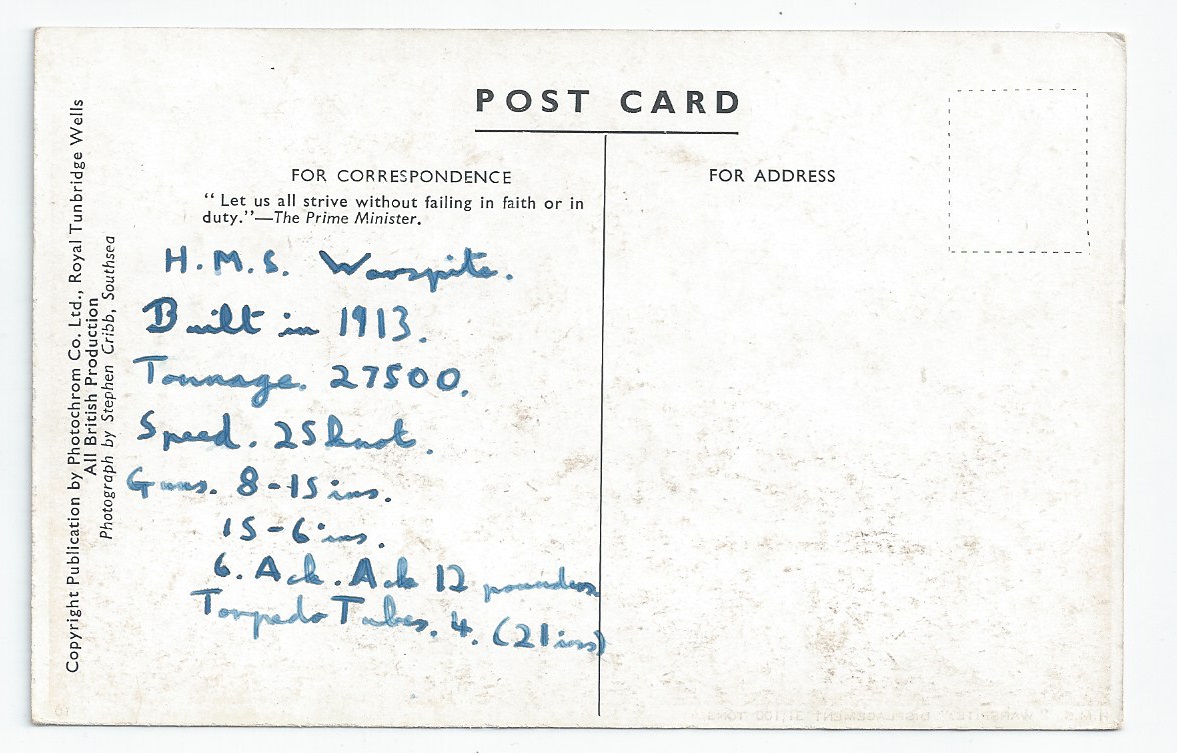 POST CARD
FOR CORRESPONDENCE
FOR ADDRESS
“ Let us all strive without failing in faith or in
duty.”—The Prime Minister.
H.M.S. Warspite.
Built in 1913.
Tonnage. 27500.
Speed. 25 knot.
Guns. 8-15 ins.
15-6 ins.
6. Ack. Ack 12 pounders
Torpedo Tubes. 4. (21 ins)
Copyright Publication by Photochrom Co. Ltd., Royal Tunbridge Wells
All British Production
Photograph by Stephen Cribb, Southsea
H.M.S. "WARSPITE" DISPLACEMENT 31,100 TONS